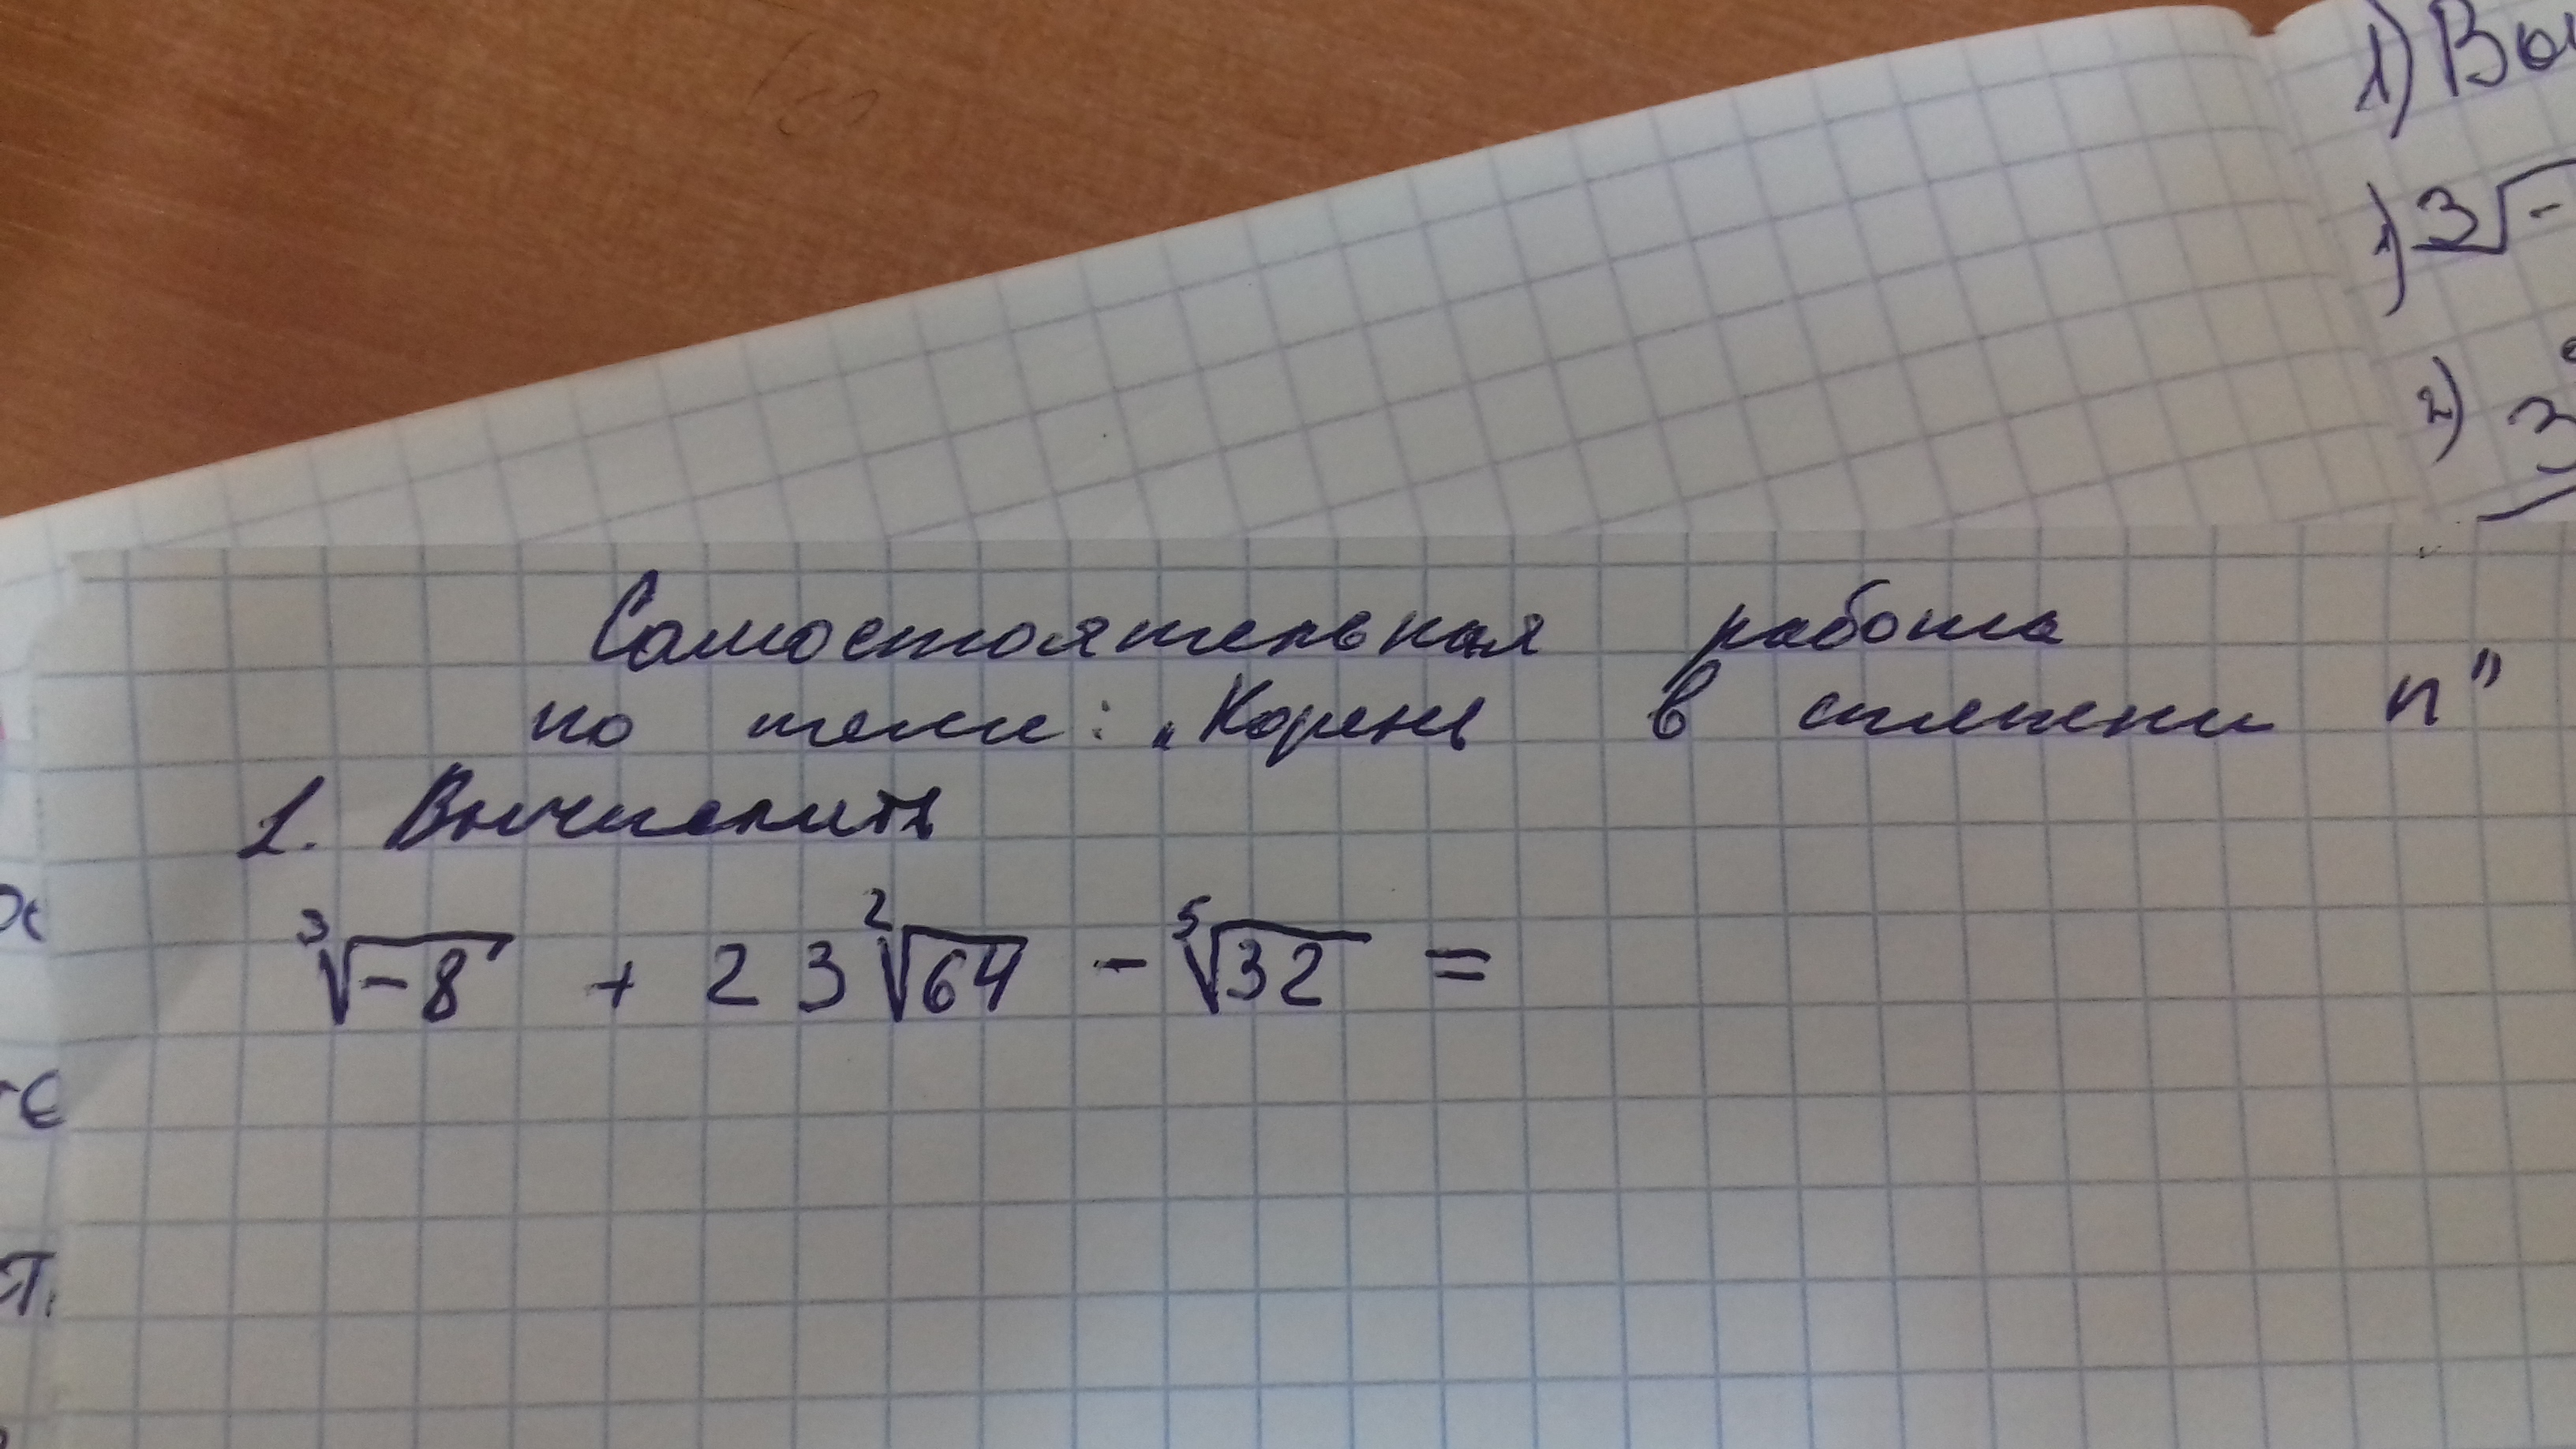 1) Вы
1) 3√-
2) 3
Самостоятельная работа
по теме: „Корень в степени n"
1. Вычислить
∛-8 + 2 3 ²√64 - ⁵√32 =